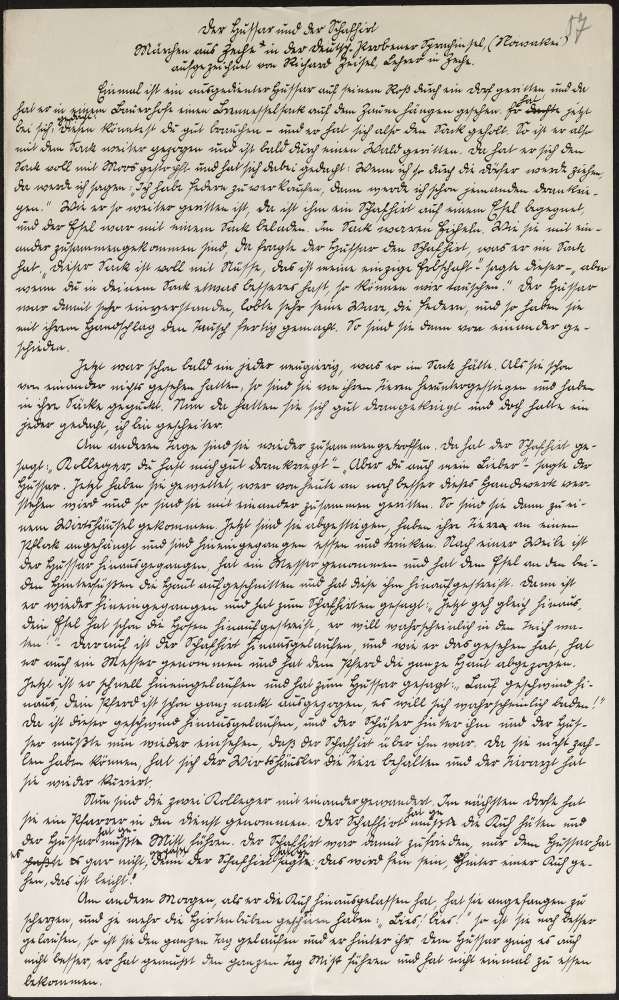 57
Der Hussar und der Schafhirt
Märchen aus Zeche in der Deutsch-Probener Sprachinsel, (Slowakei)
aufgezeichnet von Richard Zeisel, Lehrer in Zeche.
Einmal ist ein ausgedienter Hussar auf seinem Roß durch ein Dorf geritten und da
hat er in einem Bauernhofe einen Brennesselsack auf dem Zaune hängen gesehen. Er hat jetzt
bei sich gedacht: Diesen könntest du gut brauchen – und er hat sich also den Sack geholt. So ist er also
mit dem Sack weiter gezogen und ist bald durch einen Wald geritten. Da hat er sich den
Sack voll mit Moos gestopft und hat sich dabei gedacht: Wenn ich so durch die Dörfer werde ziehen,
da werde ich sagen: „Ich habe Federn zu verkaufen, dann werde ich schon jemanden drankrie-
gen." Wie er so weiter geritten ist, da ist ihm ein Schafhirt auf einem Esel begegnet,
und der Esel war mit einem Sack beladen. Im Sack waren Eicheln. Wie sie mit ein-
ander zusammengekommen sind, da fragte der Hussar den Schafhirt, was er im Sack
hat, „Dieser Sack ist voll mit Nüsse, das ist meine einzige Erbschaft" sagte dieser –, aber
wenn du in deinem Sack etwas besseres hast, so können wir tauschen." Der Hussar
war damit sehr einverstanden, lobte sehr seine Ware, die Federn, und so haben sie
mit ihrem Handschlag den Tausch fertig gemacht. So sind sie dann von einander ge-
schieden.
Jetzt war schon bald ein jeder neugierig, was er im Sack hätte. Als sie schon
von einander nichts gesehen hatten, so sind sie von ihren Tieren heruntergestiegen und haben
in ihre Säcke geguckt. Nun da hatten sie sich gut drangekriegt und doch hatte ein
jeder gedacht, ich bin gescheiter.
Am anderen Tage sind sie wieder zusammengetroffen. Da hat der Schafhirt ge-
sagt: „Kolleger, du hast mich gut drankriegt" – „Aber du auch mein Lieber" – sagte der
Hussar. Jetzt haben sie gewettet, wer von heute an noch besser dieses Handwerk ver-
stehen wird und so sind sie mit einander zusammen geritten. So sind sie dann zu ei-
nem Wirtshäusel gekommen. Jetzt sind sie abgestiegen, haben ihre Tiere an einem
Pflock angehängt und sind hineingegangen essen und trinken. Nach einer Weile ist
der Hussar hinausgegangen, hat ein Messer genommen und hat dem Esel an den bei-
den Hinterfüßen die Haut aufgeschnitten und hat diese ihm hinaufgestreift. Dann ist
er wieder hineingegangen und hat zum Schafhirten gesagt: „Jetzt geh gleich hinaus,
dein Esel hat schon die Hosen hinaufgestreift, er will wahrscheinlich in den Teich wa-
ten!" – Darauf ist der Schafhirt hinausgelaufen, und wie er das gesehen hat, hat
er auch ein Messer genommen und hat dem Pferd die ganze Haut abgezogen.
Jetzt ist er schnell hineingelaufen und hat zum Hussar gesagt: „Lauf geschwind hi-
naus, dein Pferd ist schon ganz nackt ausgezogen, es will sich wahrscheinlich baden!"
Da ist dieser geschwind hinausgelaufen, und der Schäfer hinter ihm und der Hus-
sar mußte nun wieder einsehen, daß der Schafhirt über ihm war. Da sie nicht zah-
len haben können, hat sich der Wirtshäusler die Tiere behalten und der Tierarzt hat
sie wieder kuriert.
Nun sind die zwei Kolleger mit einander gewandert. Im nächsten Dorfe hat
sie ein Pfarrer in den Dienst genommen. Der Schafhirt mußte die Kuh hüten und
der Hussar mußte Mist führen. Der Schafhirt war damit zufrieden, nur dem Hussar hat
es gar nicht gepaßt, denn der Schafhirt sagte: das wird fein sein, hinter einer Kuh ge-
hen, das ist leicht!
Am andern Morgen, als er die Kuh hinausgelassen hat, hat sie angefangen zu
scherzen, und je mehr die Hirtenbuben geschrien haben: „Bies, bies!" so ist sie noch besser
gelaufen, so ist sie den ganzen Tag gelaufen und er hinter ihr. Dem Hussar ging es auch
nicht besser, er hat gemußt den ganzen Tag Mist führen und hat nicht einmal zu essen
bekommen.